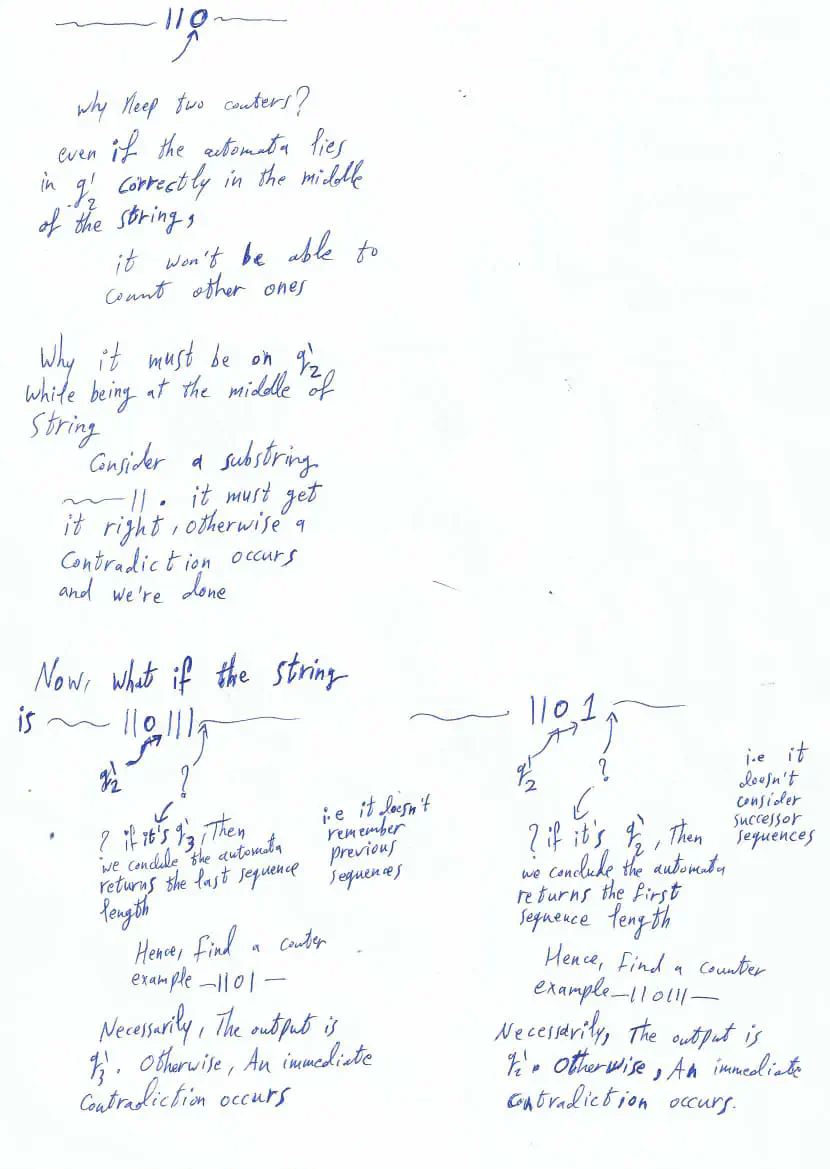 110
Why Keep two couters?
even if the automata lies
in q'2 correctly in the middle
of the string,
it won't be able to
count other ones
Why it must be on q'2
while being at the middle of
String
Consider a substring
11. it must get
it right, otherwise a
Contradiction occurs
and we're done
Now, what if the string
is 110111
q'2
?
? if it's q'3, Then
we conclude the automata
returns the last sequence
length
i.e it doesn't
remember
previous
sequences
Hence, find a couter
example —1101—
Necessarily, The output is
q'3. Otherwise, An immediate
Contradiction occurs
1101
q'2
?
? if it's q'2, Then
we conclude the automata
returns the first
sequence length
i.e it
doesn't
consider
successor
sequences
Hence, Find a counter
example —110111—
Necessarily, The output is
q'2. Otherwise, An immediate
contradiction occurs.